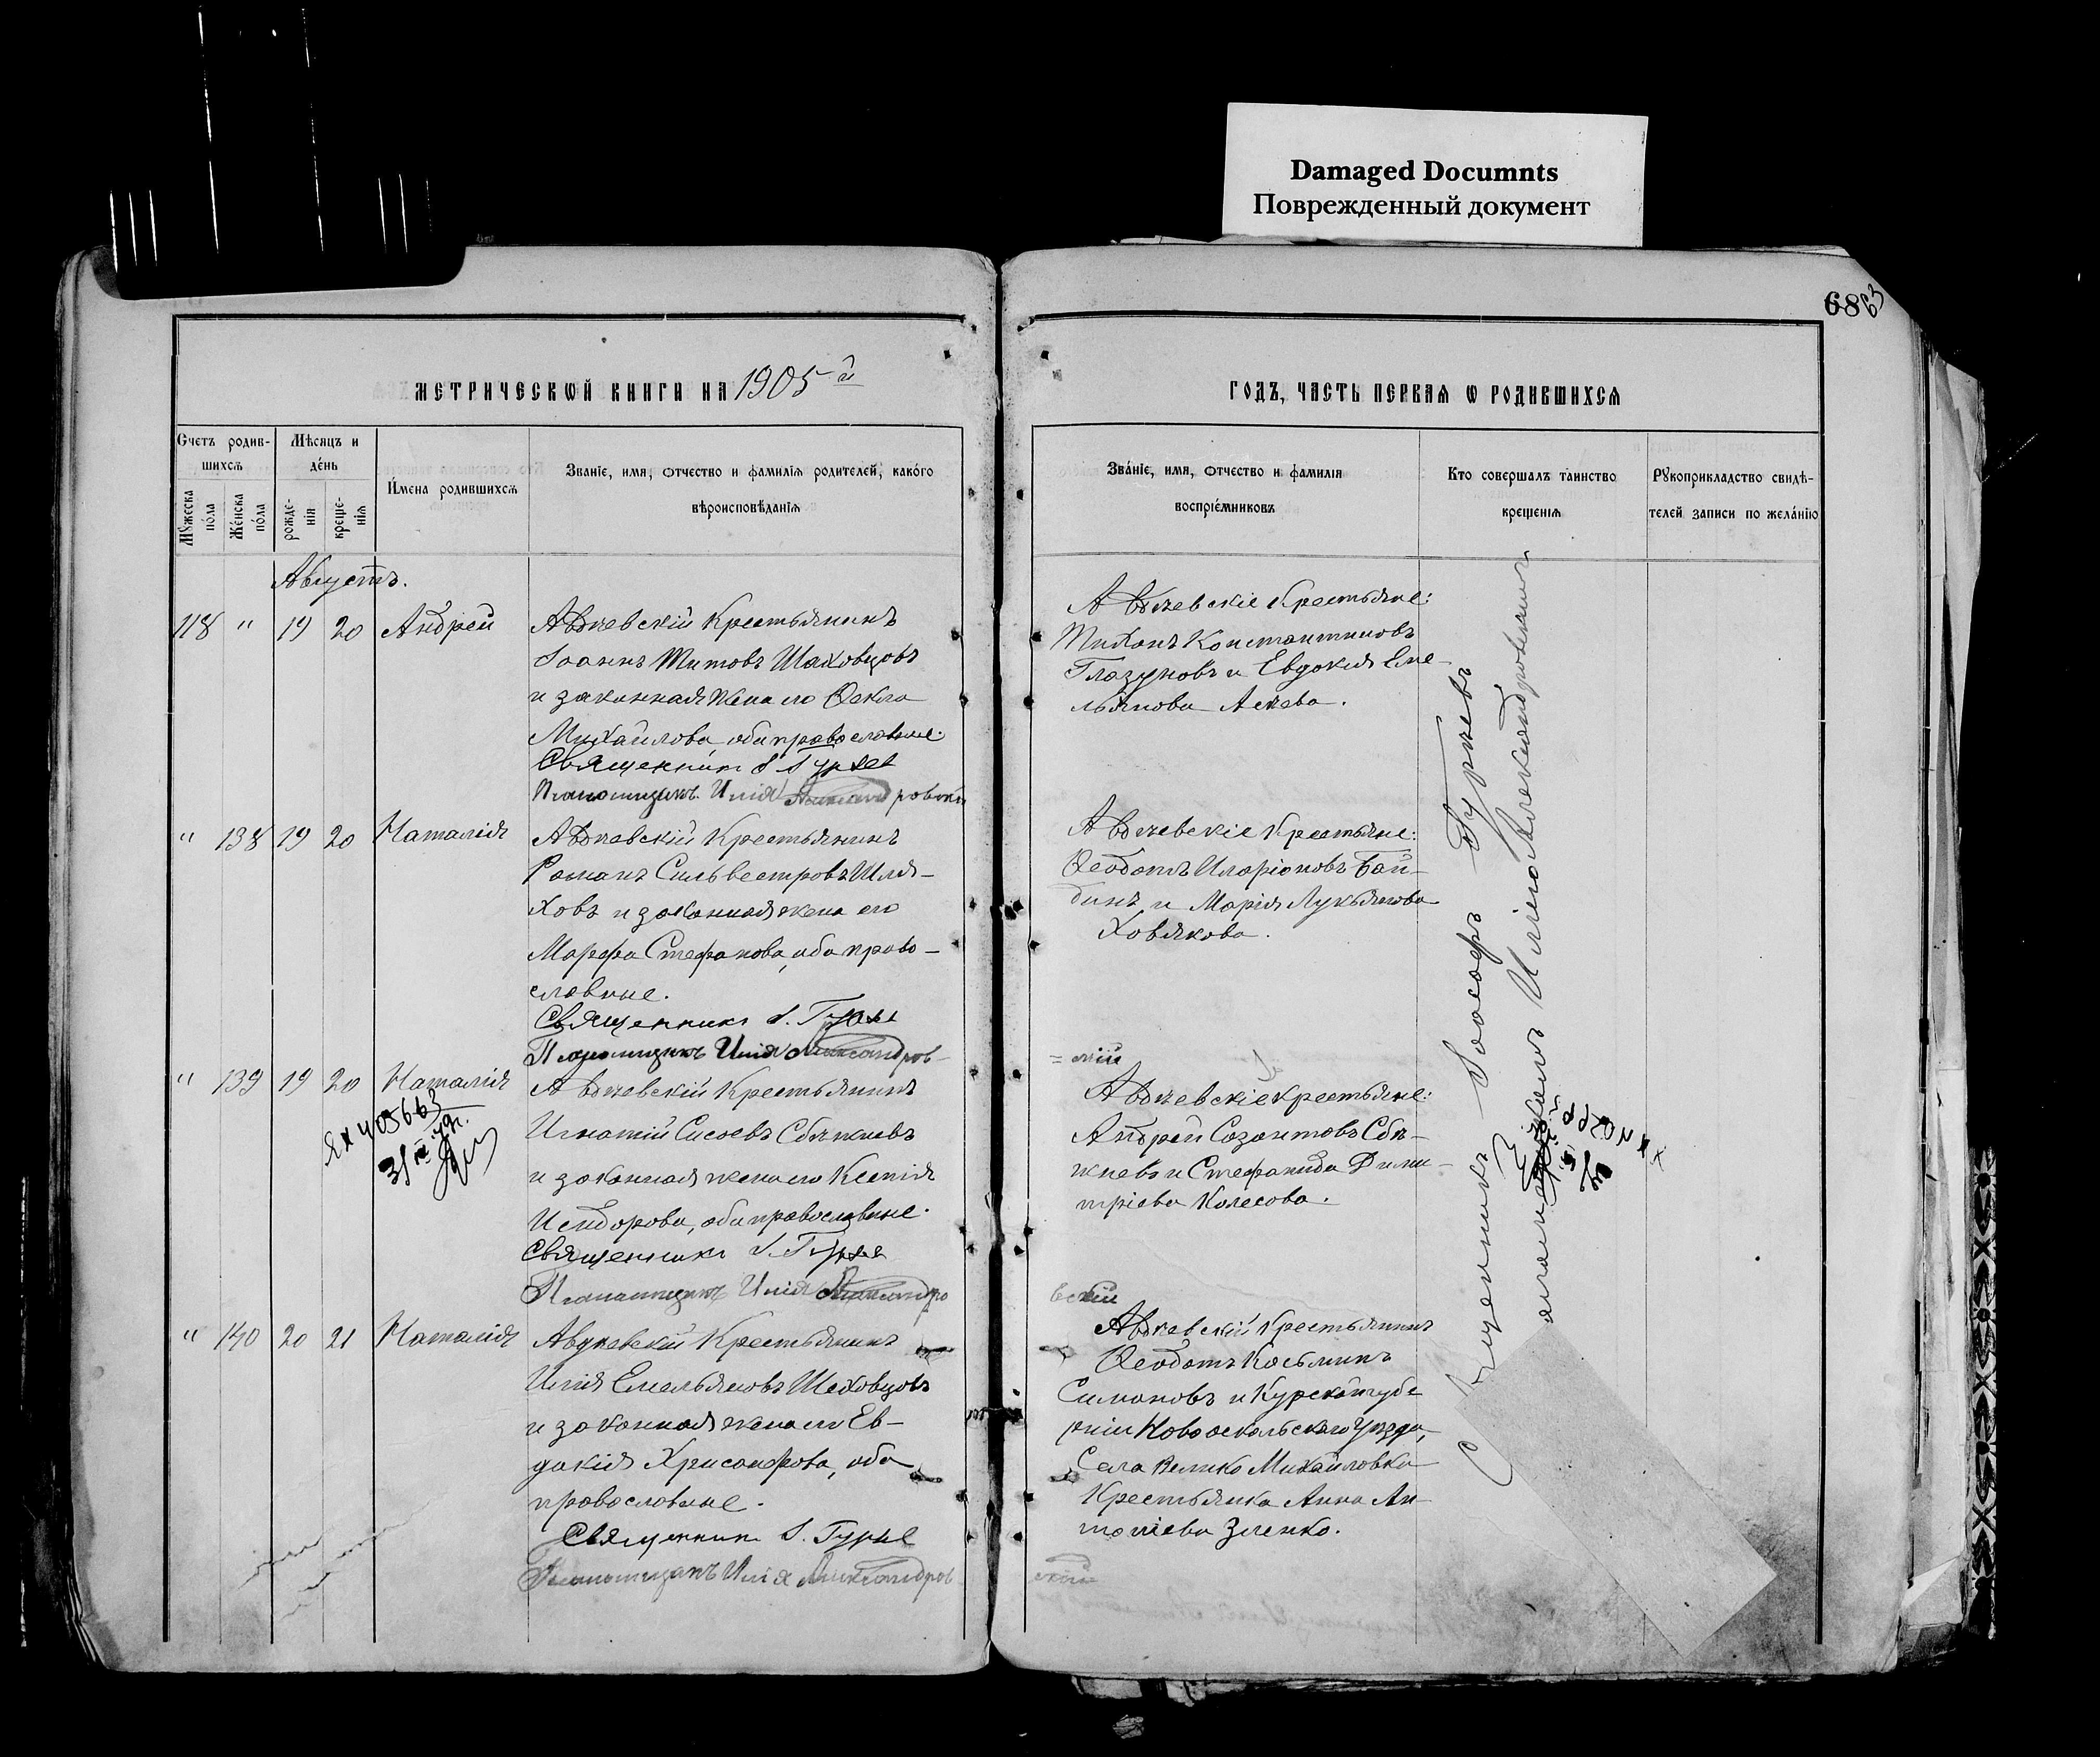 Damaged Documnts
Поврежденный документ
6863
МЕТРИЧЕСКѠЙ КНИГИ НА 1905й
ГОДЪ, ЧАСТЬ ПЕРВАѦ Ѡ РОДИВШИХСѦ
Счетъ родив-
шихсѧ
Мꙋжеска
пола
Женска
пола
Мѣсяцъ и
день
рожде-
нія
креще-
нія
Имена родившихсѧ
Званіе, имя, отчество и фамилія родителей, какого
вѣроисповѣданія
Званіе, имя, отчество и фамилія
воспріемниковъ
Кто совершалъ таинство
крещенія
Рꙋкоприкладство свидѣ-
телей записи по желанію
Августъ.
118 " 19 20 Андрей
Авдѣевскій Крестьянинъ
Іоаннъ Титовъ Шаховцовъ
и законная жена его Ѳекла
Михайлова, оба православные.
Священникъ І Гурьев
Псаломщикъ Илія Александровскій
Авдѣевскіе Крестьяне:
Тихонъ Константиновъ
Глазуновъ и Евдокія Еме-
льянова Асѣева.
" 138 19 20 Наталія
Авдѣевскій Крестьянинъ
Романъ Сильвестровъ Шля-
ховъ и законная жена его
Марфа Стефанова, оба право-
славные.
Священникъ І. Гурьев
Псаломщикъ Илія Александров-
=скій
Авдѣевскіе Крестьяне:
Ѳеодотъ Иларіоновъ Бай-
динъ и Марія Лукьянова
Ховякова.
" 139 19 20 Наталія
Авдѣевскій Крестьянинъ
Игнатій Сисоевъ Сбѣжневъ
и законная жена его Ксенія
Исидорова, оба православные.
Священникъ І. Гурьев
Псаломщикъ Илія Александро
вскій
Авдѣевскіе крестьяне:
Андрей Созонтовъ Сбѣ-
жневъ и Стефанида Дими-
тріева Колесова.
" 140 20 21 Наталія
Авдѣевскій Крестьянинъ
Илія Емельяновъ Шеховцовъ
и законная жена его Ев-
докія Хрисанфова, оба
православные.
Священник І. Гурьев
Псаломщикъ Илія Александров
скій
Авдѣевскій Крестьянинъ
Ѳеодотъ Косьминъ
Симоновъ и Курской губе
рніи Новооскольскаго Уѣзда,
Села Велико Михайловки
Крестьянка Анна Ан-
тоніева Зленко.
Священникъ Іоасафъ Гурьевъ
Илія Александровскій